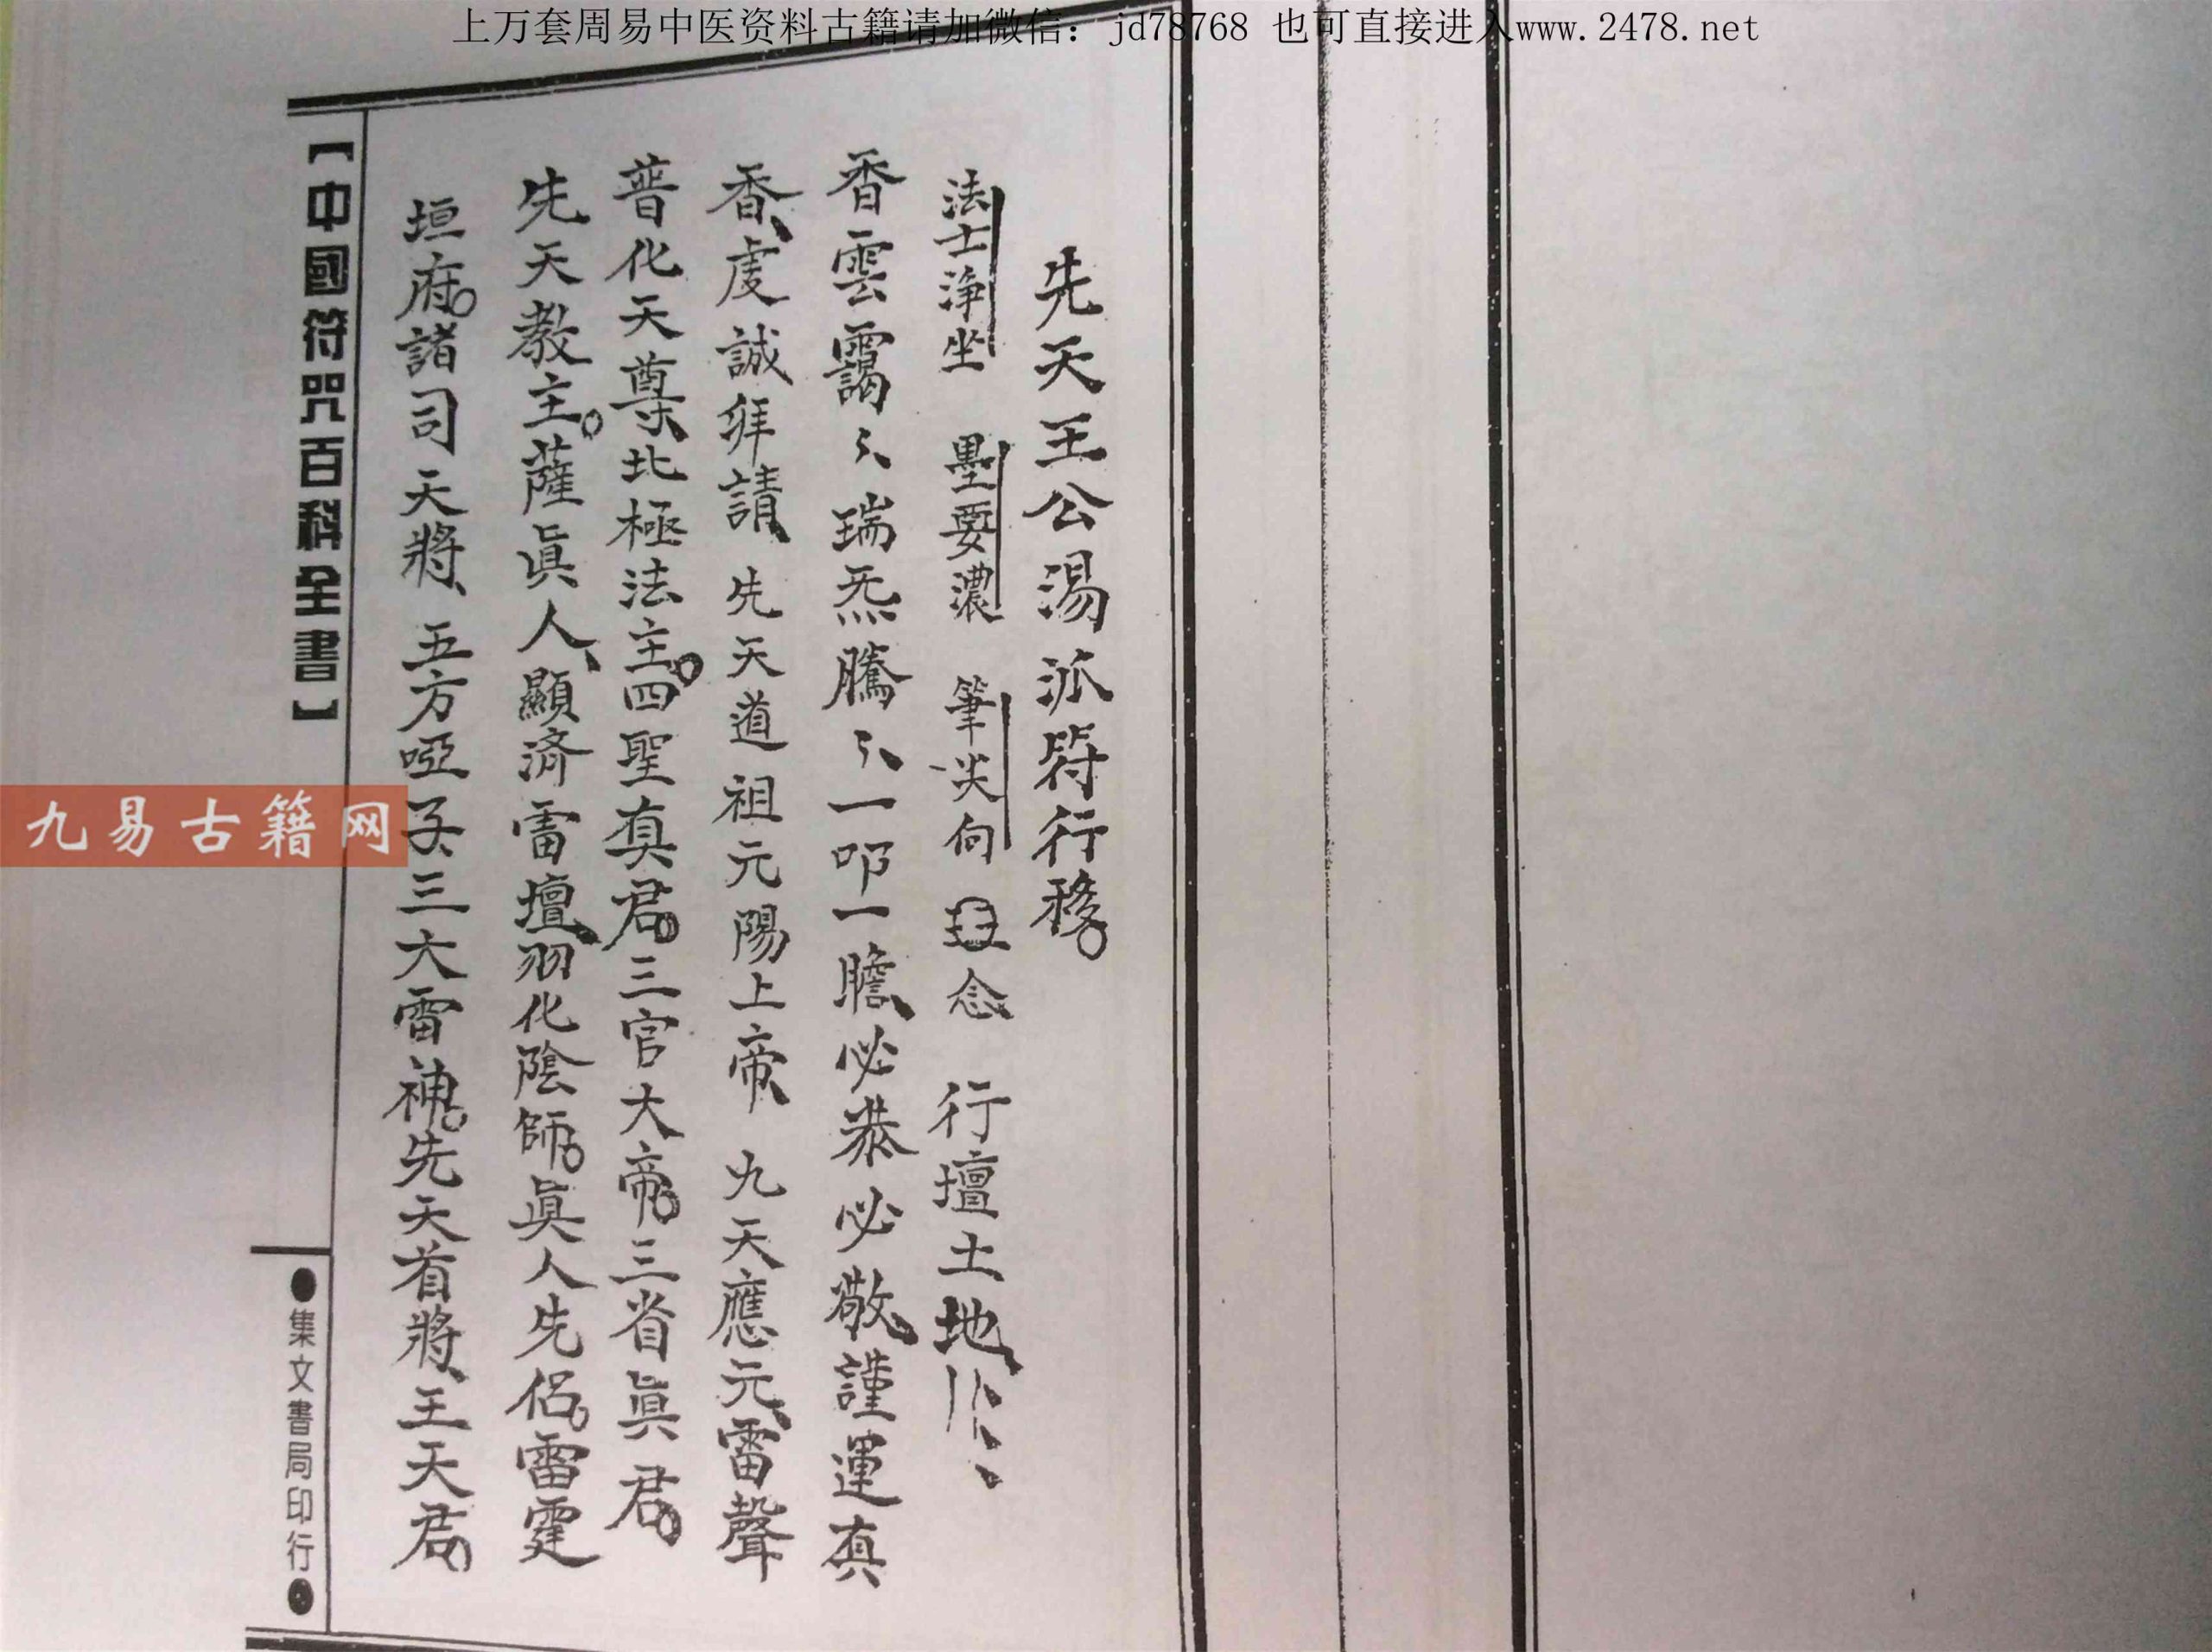 上万套周易中医资料古籍请加微信：jd78768 也可直接进入www.2478.net
先天王公湯派符行移。
法士浄坐 墨要濃 筆尖向 念 行壇土地
香雲靄〻瑞炁騰〻一叩一瞻、必恭必敬、謹運真
香、虔誠拜請、先天道祖元陽上帝、九天應元、雷聲
普化天尊、北極法主。四聖真君。三官大帝。三省眞君。
先天教主。薩眞人、顯済雷壇、羽化陰師。眞人先侶。雷霆
垣府。諸司天將、五方啞子、三大雷神。先天首將、王天君。
【中國符咒百科全書】
●集文書局印行●
九易古籍网